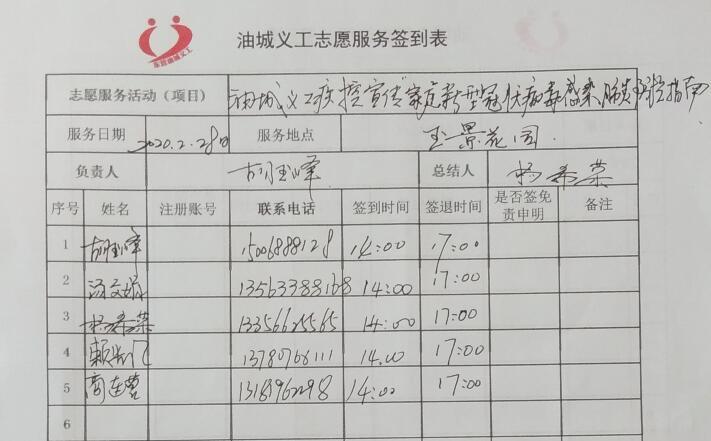 东营油城义工
油城义工志愿服务签到表
志愿服务活动（项目） 油城义工疾控宣传"家庭新型冠状病毒感染肺炎预防指南
服务日期 2020.2.28日 服务地点 玉景花园
负责人 胡玉峰 总结人 杨希荣
序号 姓名 注册账号 联系电话 签到时间 签退时间 是否签免责申明 备注
1 胡玉峰 15006888128 14:00 17:00
2 13563388168 14:00 17:00
3 杨希荣 13356625565 14:00 17:00
4 13780768111 14.00 17:00
5 商连营 13181962298 14:00 17:00
6